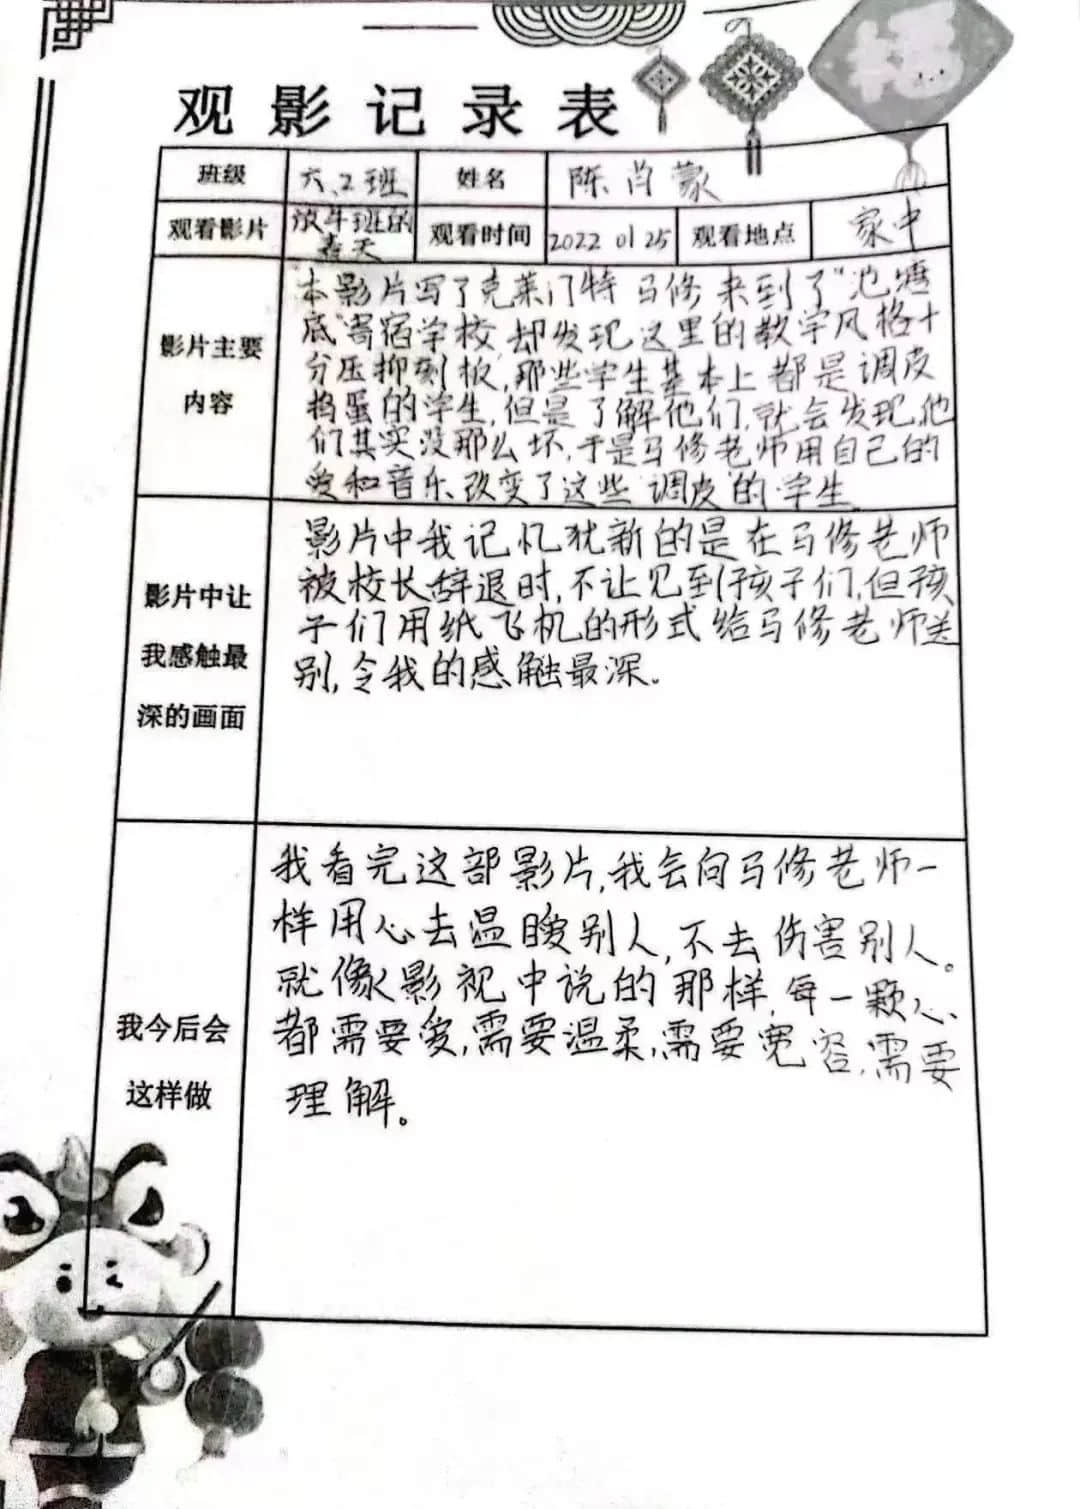 福
观影记录表
班级 六、2班 姓名 陈肖蒙
观看影片 放牛班的春天 观看时间 2022 01 25 观看地点 家中
影片主要内容
本影片写了克莱门特 马修 来到了"池塘
底"寄宿学校,却发现这里的教学风格十
分压抑刻板,那些学生基本上都是调皮
捣蛋的学生,但是了解他们,就会发现,他
们其实没那么坏,于是马修老师用自己的
爱和音乐改变了这些"调皮"的学生.
影片中让我感触最深的画面
影片中我记忆犹新的是在马修老师
被校长辞退时,不让见到孩子们,但孩
子们用纸飞机的形式给马修老师送
别,令我的感触最深。
我今后会这样做
我看完这部影片,我会向马修老师一
样用心去温暖别人,不去伤害别人。
就像影视中说的那样,每一颗心
都需要爱,需要温柔,需要宽容,需要
理解。